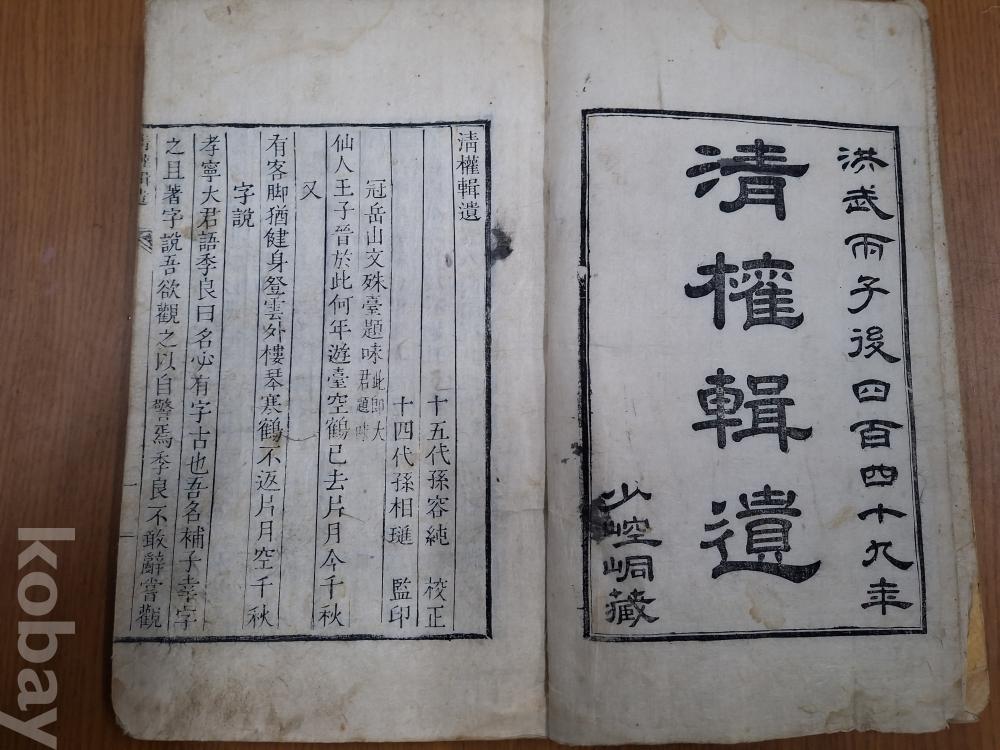 洪武丙子後四百四十九年
清權輯遺
少崆峒藏
清權輯遺
十五代孫容純 校正
十四代孫相琎 監印
冠岳山文殊臺題咏此即大君題咏
仙人王子晉於此何年遊臺空鶴已去片月今千秋
又
有客脚猶健身登雲外樓琴寒鶴不返片月空千秋
字說
孝寧大君語季良曰名必有字古也吾名補子幸字
之且著字說吾欲觀之以自警焉季良不敢辭嘗觀
清權輯遺
kobay